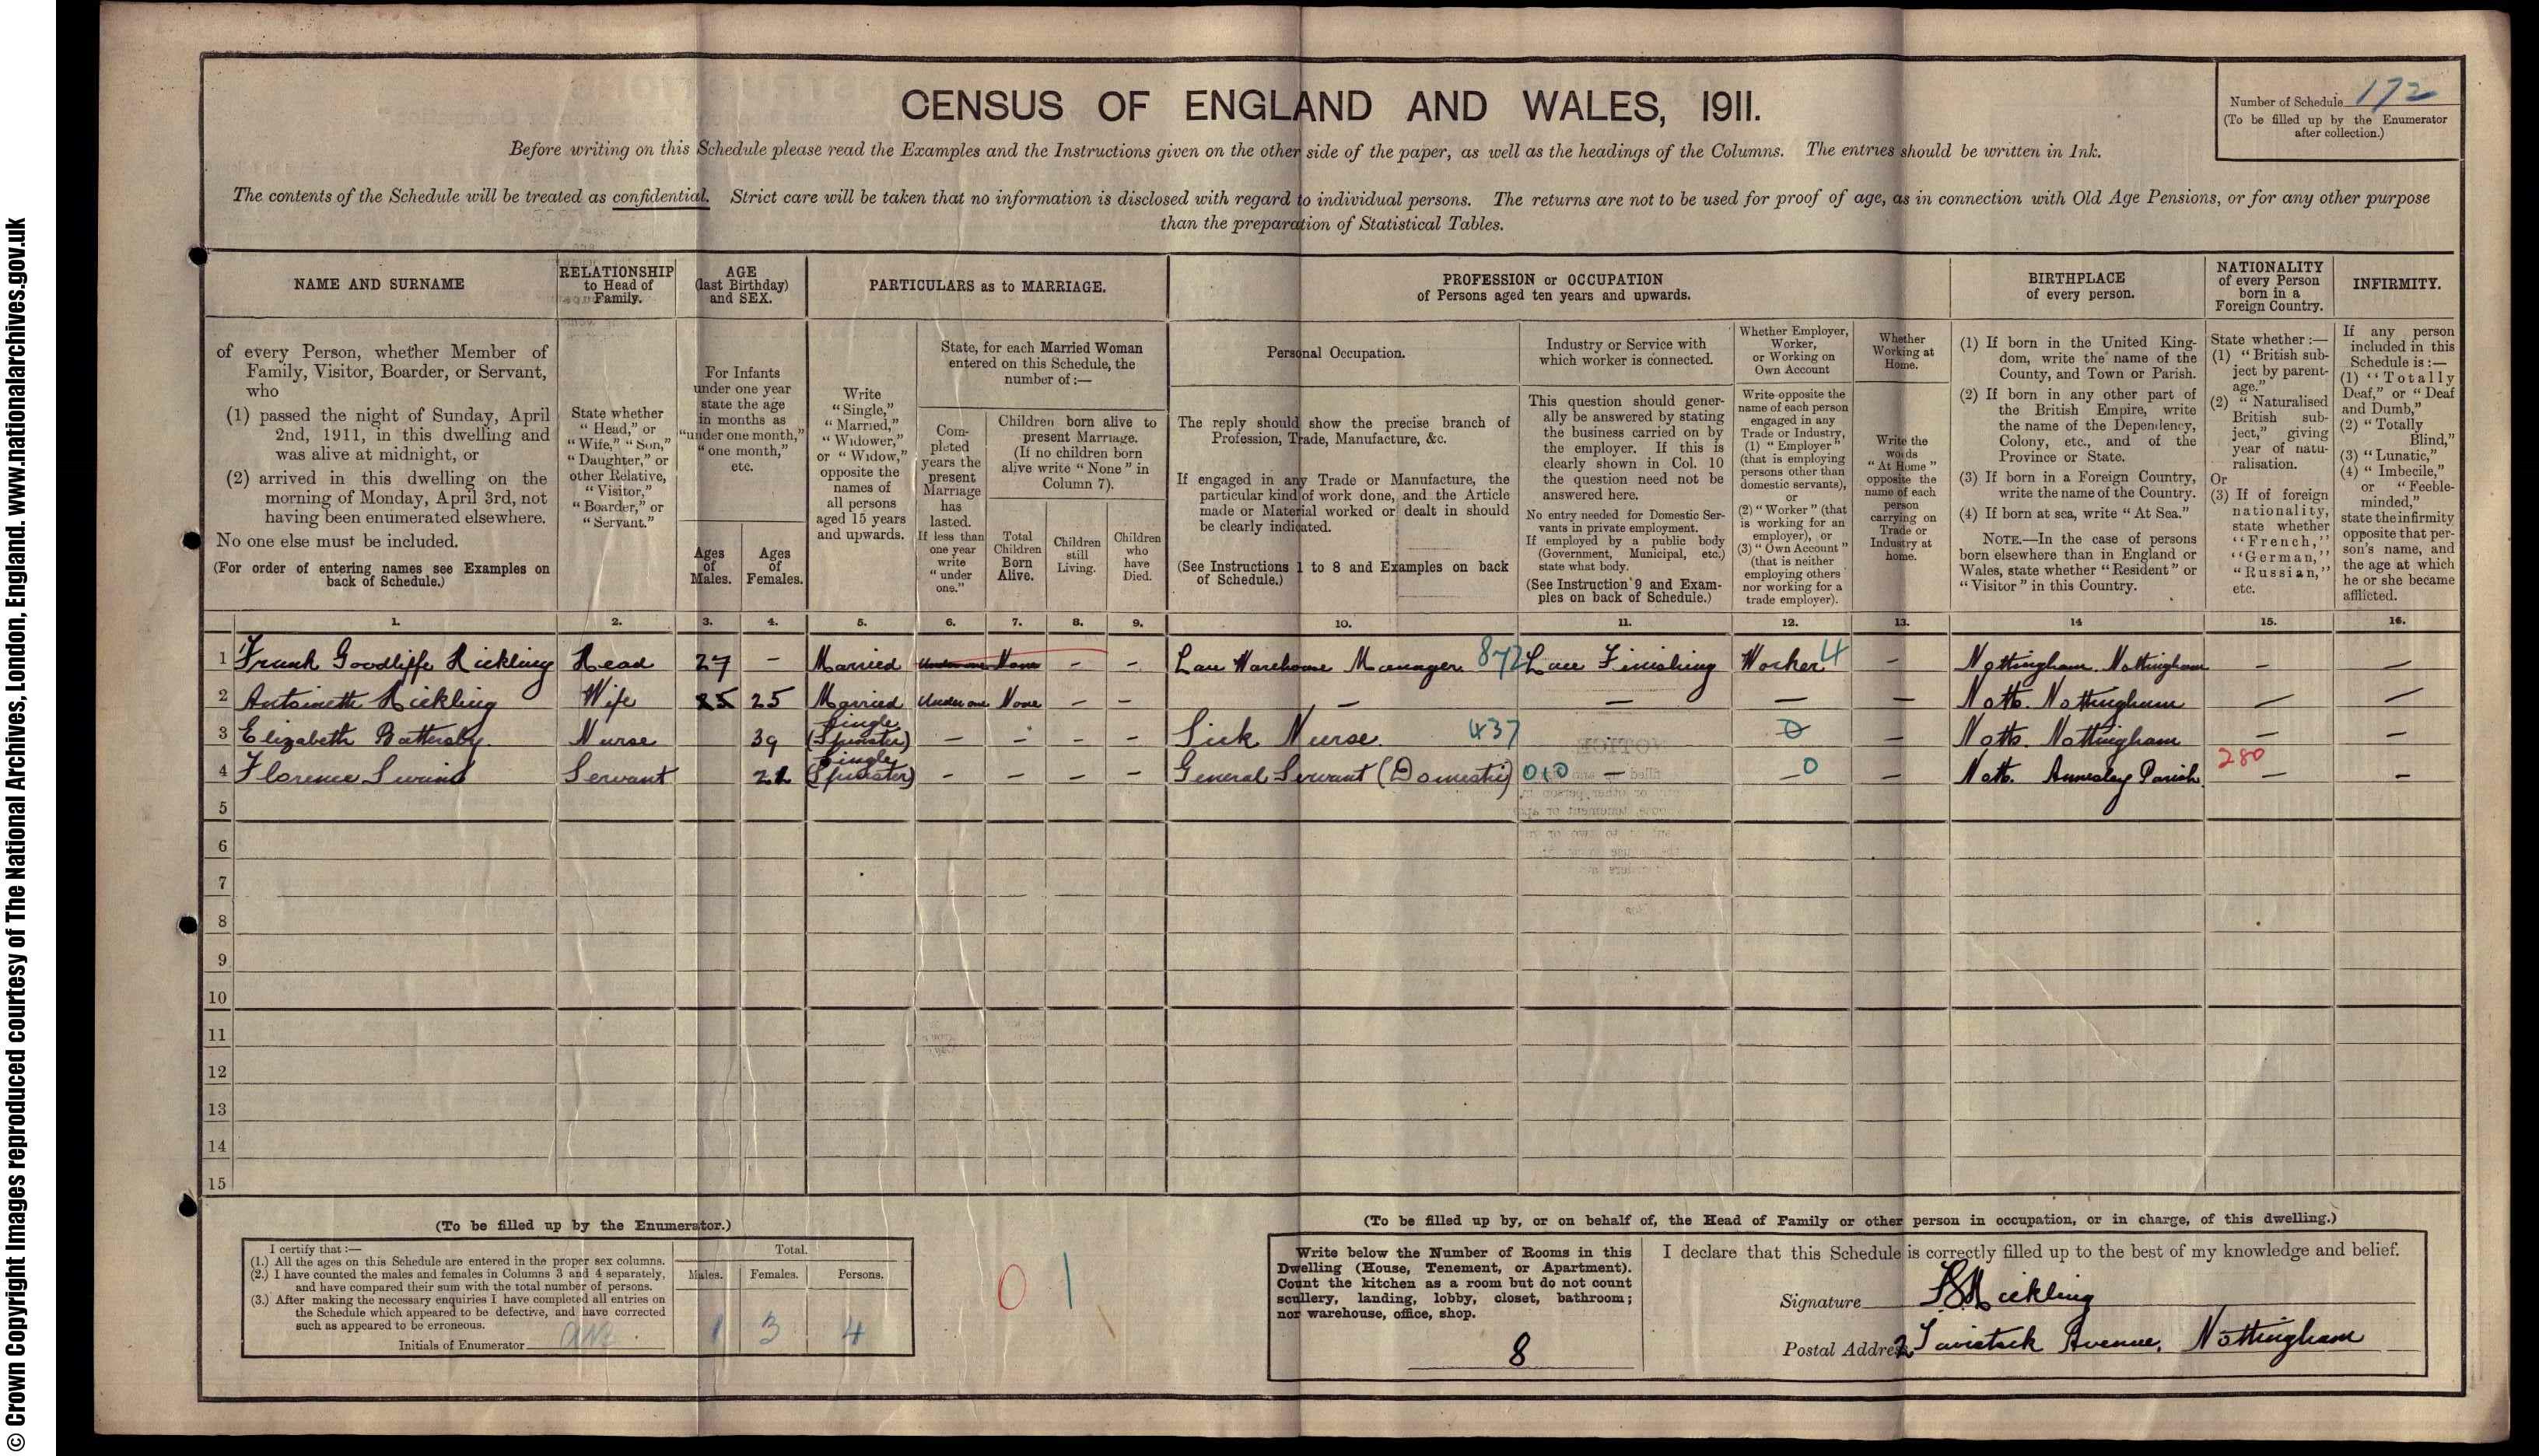 © Crown Copyright Images reproduced courtesy of The National Archives, London, England. www.nationalarchives.gov.uk
CENSUS OF ENGLAND AND WALES, 1911.
Number of Schedule 172
(To be filled up by the Enumerator
after collection.)
Before writing on this Schedule please read the Examples and the Instructions given on the other side of the paper, as well as the headings of the Columns. The entries should be written in Ink.
The contents of the Schedule will be treated as confidential. Strict care will be taken that no information is disclosed with regard to individual persons. The returns are not to be used for proof of age, as in connection with Old Age Pensions, or for any other purpose
than the preparation of Statistical Tables.
NAME AND SURNAME
of every Person, whether Member of
Family, Visitor, Boarder, or Servant,
who
(1) passed the night of Sunday, April
2nd, 1911, in this dwelling and
was alive at midnight, or
(2) arrived in this dwelling on the
morning of Monday, April 3rd, not
having been enumerated elsewhere.
No one else must be included.
(For order of entering names see Examples on
back of Schedule.)
RELATIONSHIP
to Head of
Family.
State whether
"Head," or
"Wife," "Son,"
"Daughter," or
other Relative,
"Visitor,"
"Boarder," or
"Servant."
AGE
(last Birthday)
and SEX.
For Infants
under one year
state the age
in months as
"under one month,"
"one month,"
etc.
Ages
of
Males.
Ages
of
Females.
PARTICULARS as to MARRIAGE.
Write
"Single,"
"Married,"
"Widower,"
or "Widow,"
opposite the
names of
all persons
aged 15 years
and upwards.
State, for each Married Woman
entered on this Schedule, the
number of:—
Com-
pleted
years the
present
Marriage
has
lasted.
If less than
one year
write
"under
one."
Children born alive to
present Marriage.
(If no children born
alive write "None" in
Column 7).
Total
Children
Born
Alive.
Children
still
Living.
Children
who
have
Died.
PROFESSION or OCCUPATION
of Persons aged ten years and upwards.
Personal Occupation.
The reply should show the precise branch of
Profession, Trade, Manufacture, &c.
If engaged in any Trade or Manufacture, the
particular kind of work done, and the Article
made or Material worked or dealt in should
be clearly indicated.
(See Instructions 1 to 8 and Examples on back
of Schedule.)
Industry or Service with
which worker is connected.
This question should gener-
ally be answered by stating
the business carried on by
the employer. If this is
clearly shown in Col. 10
the question need not be
answered here.
No entry needed for Domestic Ser-
vants in private employment.
If employed by a public body
(Government, Municipal, etc.)
state what body.
(See Instruction 9 and Exam-
ples on back of Schedule.)
Whether Employer,
Worker,
or Working on
Own Account
Write opposite the
name of each person
engaged in any
Trade or Industry,
(1) "Employer"
(that is employing
persons other than
domestic servants),
or
(2) "Worker" (that
is working for an
employer), or
(3) "Own Account"
(that is neither
employing others
nor working for a
trade employer).
Whether
Working at
Home.
Write the
words
"At Home"
opposite the
name of each
person
carrying on
Trade or
Industry at
home.
BIRTHPLACE
of every person.
(1) If born in the United King-
dom, write the name of the
County, and Town or Parish.
(2) If born in any other part of
the British Empire, write
the name of the Dependency,
Colony, etc., and of the
Province or State.
(3) If born in a Foreign Country,
write the name of the Country.
(4) If born at sea, write "At Sea."
NOTE.—In the case of persons
born elsewhere than in England or
Wales, state whether "Resident" or
"Visitor" in this Country.
NATIONALITY
of every Person
born in a
Foreign Country.
State whether :—
(1) "British sub-
ject by parent-
age."
(2) "Naturalised
British sub-
ject," giving
year of natu-
ralisation.
Or
(3) If of foreign
nationality,
state whether
"French,"
"German,"
"Russian,"
etc.
INFIRMITY.
If any person
included in this
Schedule is :—
(1) "Totally
Deaf," or "Deaf
and Dumb,"
(2) "Totally
Blind,"
(3) "Lunatic,"
(4) "Imbecile,"
or "Feeble-
minded,"
state the infirmity
opposite that per-
son's name, and
the age at which
he or she became
afflicted.
1. 2. 3. 4. 5. 6. 7. 8. 9. 10. 11. 12. 13. 14 15. 16.
1 Frank Goodliffe Hickling Head 27 – Married Under one None – – Lace Warehouse Manager 872 Lace Finishing Worker 4 – Nottingham. Nottingham – –
2 Antoinette Hickling Wife 25 25 Married Under one None – – – – – – Notts. Nottingham – –
3 Elizabeth Battersby Nurse 39 Single (Spinster) – – – – Sick Nurse. 437 0 – Notts. Nottingham – –
4 Florence Servant Single (Spinster) – – – – General Servant (Domestic) 010 – – 0 – Notts. Annesley Parish. 280 – –
5
6
7
8
9
10
11
12
13
14
15
(To be filled up by the Enumerator.)
I certify that :—
(1.) All the ages on this Schedule are entered in the proper sex columns.
(2.) I have counted the males and females in Columns 3 and 4 separately,
and have compared their sum with the total number of persons.
(3.) After making the necessary enquiries I have completed all entries on
the Schedule which appeared to be defective, and have corrected
such as appeared to be erroneous.
Initials of Enumerator
Total.
Males. Females. Persons.
1 3 4
0 1
(To be filled up by, or on behalf of, the Head of Family or other person in occupation, or in charge, of this dwelling.)
Write below the Number of Rooms in this
Dwelling (House, Tenement, or Apartment).
Count the kitchen as a room but do not count
scullery, landing, lobby, closet, bathroom;
nor warehouse, office, shop.
8
I declare that this Schedule is correctly filled up to the best of my knowledge and belief.
Signature FGHickling
Postal Address 2 Tavistock Avenue, Nottingham